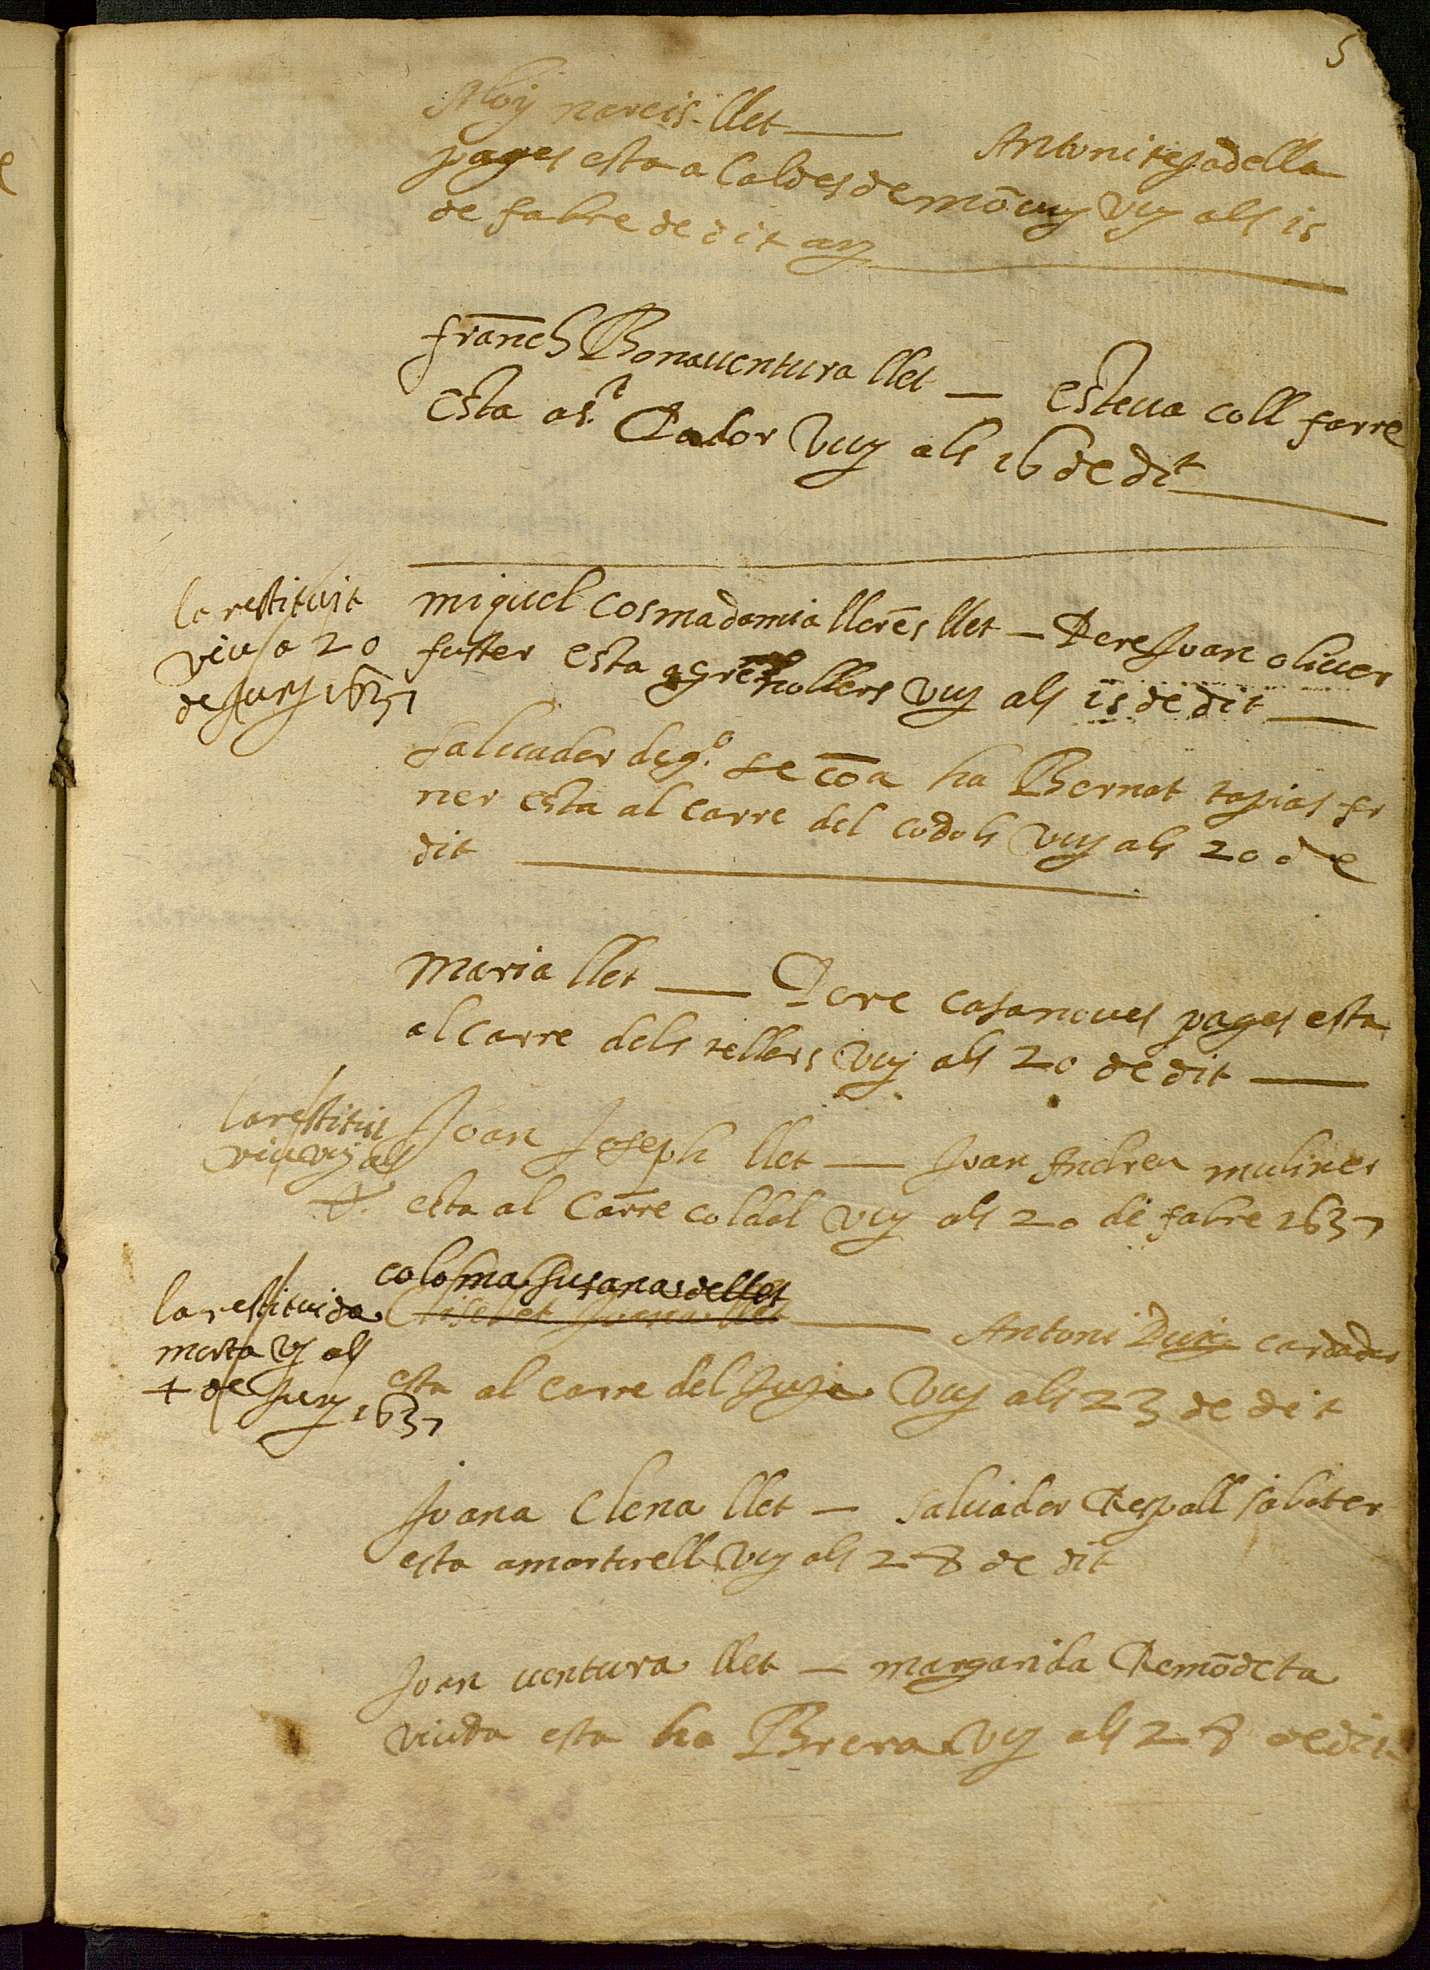 5
Aloÿ narcis llet — Antoni rejadella
pages esta a Caldes de mōbuy vuy als 15
de fabre de dit añ
franch Bonauentura llet — esteua coll farre
esta a st. Pador vuy als 16 de dit
la restituit
viu a 20
de Juny 1637
miquel cosmadamia llorēs llet — Pere Juan oliuer
fuster esta a granollers vuy als 15 de dit —
saluador dego. se coā ha Bernat tapias fr
ner esta al carre del codols vuy als 20 de
dit
Maria llet — Pere casanoues pages esta
al carre dels tellers vuy als 20 de dit —
la restitui
viu vuy als
Joan Joseph llet — Juan Andreu muliner
esta al Carre coldal vuy als 20 de fabre 1637
la restituida
morta vy als
4 de Juny 1637
coloma susana de llet
Elisebet Juana llet — Antoni Puig cardador
esta al carre del vuy als 23 de dit
Juana Elena llet — saluador Respall sabater
esta a martorell vuy als 28 de dit
Joan uentura llet — margarida Remōdeta
viuda esta ha Brera vuy als 28 de dit